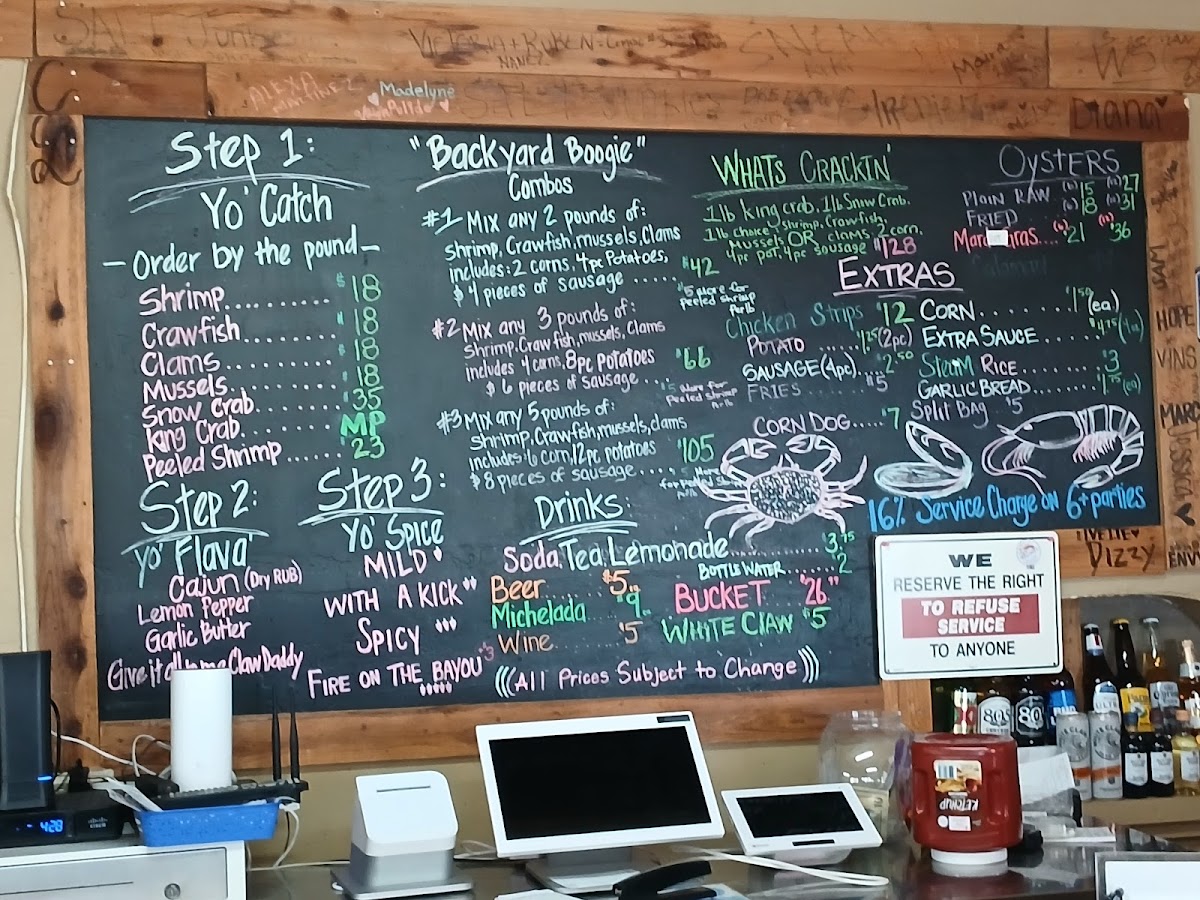 VICTORIA + RUBEN
NANEZ
ALEXA
MARTINEZ
Madelyne
Diana
Step 1:
Yo' Catch
- Order by the pound -
Shrimp.......... $18
Crawfish.......... $18
Clams.......... $18
Mussels.......... $18
Snow Crab....... $35
King Crab....... MP
Peeled Shrimp...... $23
Step 2:
Yo' Flava'
Cajun (Dry RUB)
Lemon Pepper
Garlic Butter
Claw Daddy
Step 3:
Yo' Spice
MILD
WITH A KICK
SPICY
FIRE ON THE BAYOU
"Backyard Boogie"
Combos
#1 Mix any 2 pounds of:
shrimp, Crawfish, mussels, Clams
includes: 2 corns, 4pc Potatoes,
$ 4 pieces of sausage ..... $42
$5 More for
peeled shrimp
#2 Mix any 3 pounds of:
Shrimp, Crawfish, mussels, Clams
includes 4 corns, 8pc potatoes
$ 6 pieces of sausage .... $66
$5 More for
peeled shrimp
#3 Mix any 5 pounds of:
shrimp, Crawfish, mussels, clams
includes: 6 corn, 12pc potatoes
$ 8 pieces of sausage ..... $105
Drinks:
Soda, Tea, Lemonade.......... $3.75
BOTTLE WATER..... 2
Beer $5
Michelada $9
Wine $5
BUCKET $26
WHITE CLAW $5
(((All Prices Subject to Change)))
WHATS CRACKIN'
1lb king crab, 1lb Snow Crab,
1lb choice, shrimp, Crawfish,
Mussels OR clams, 2 corn,
4pc pot, 4pc sausage $128
OYSTERS
PLAIN RAW (6) 15 (12) 27
FRIED (6) 18 (12) 31
(6) $21 (12) $36
EXTRAS
Chicken Strips $12
POTATO ...... 1.25 (2pc)
SAUSAGE (4pc).. 2.50
FRIES $5
CORN DOG..... $7
CORN........ $1.50 (ea)
EXTRA SAUCE...... $4.75 (4oz)
STEAM RICE...... $3
GARLIC BREAD...... $1.75 (ea)
Split Bag $5
16% Service Charge on 6+ parties
HOPE
VINS
Dizzy
WE
RESERVE THE RIGHT
TO REFUSE
SERVICE
TO ANYONE
KETCHUP
428